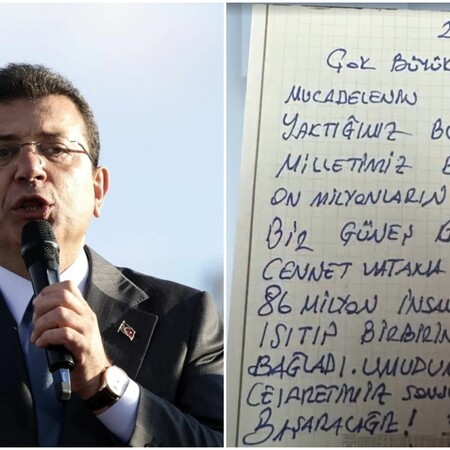 2
ÇOK BÜYÜK
MÜCADELENİN
YAKTIĞIMIZ
MİLLETİMİZ
ON MİLYONLARIN
BİR GÜNEŞ
CENNET VATANA
86 MİLYON İNSA
ISITIP BİRBİRİN
BAĞLADI. UMUDUM
CESARETİMİZ SONSU
BAŞARACAĞIZ!